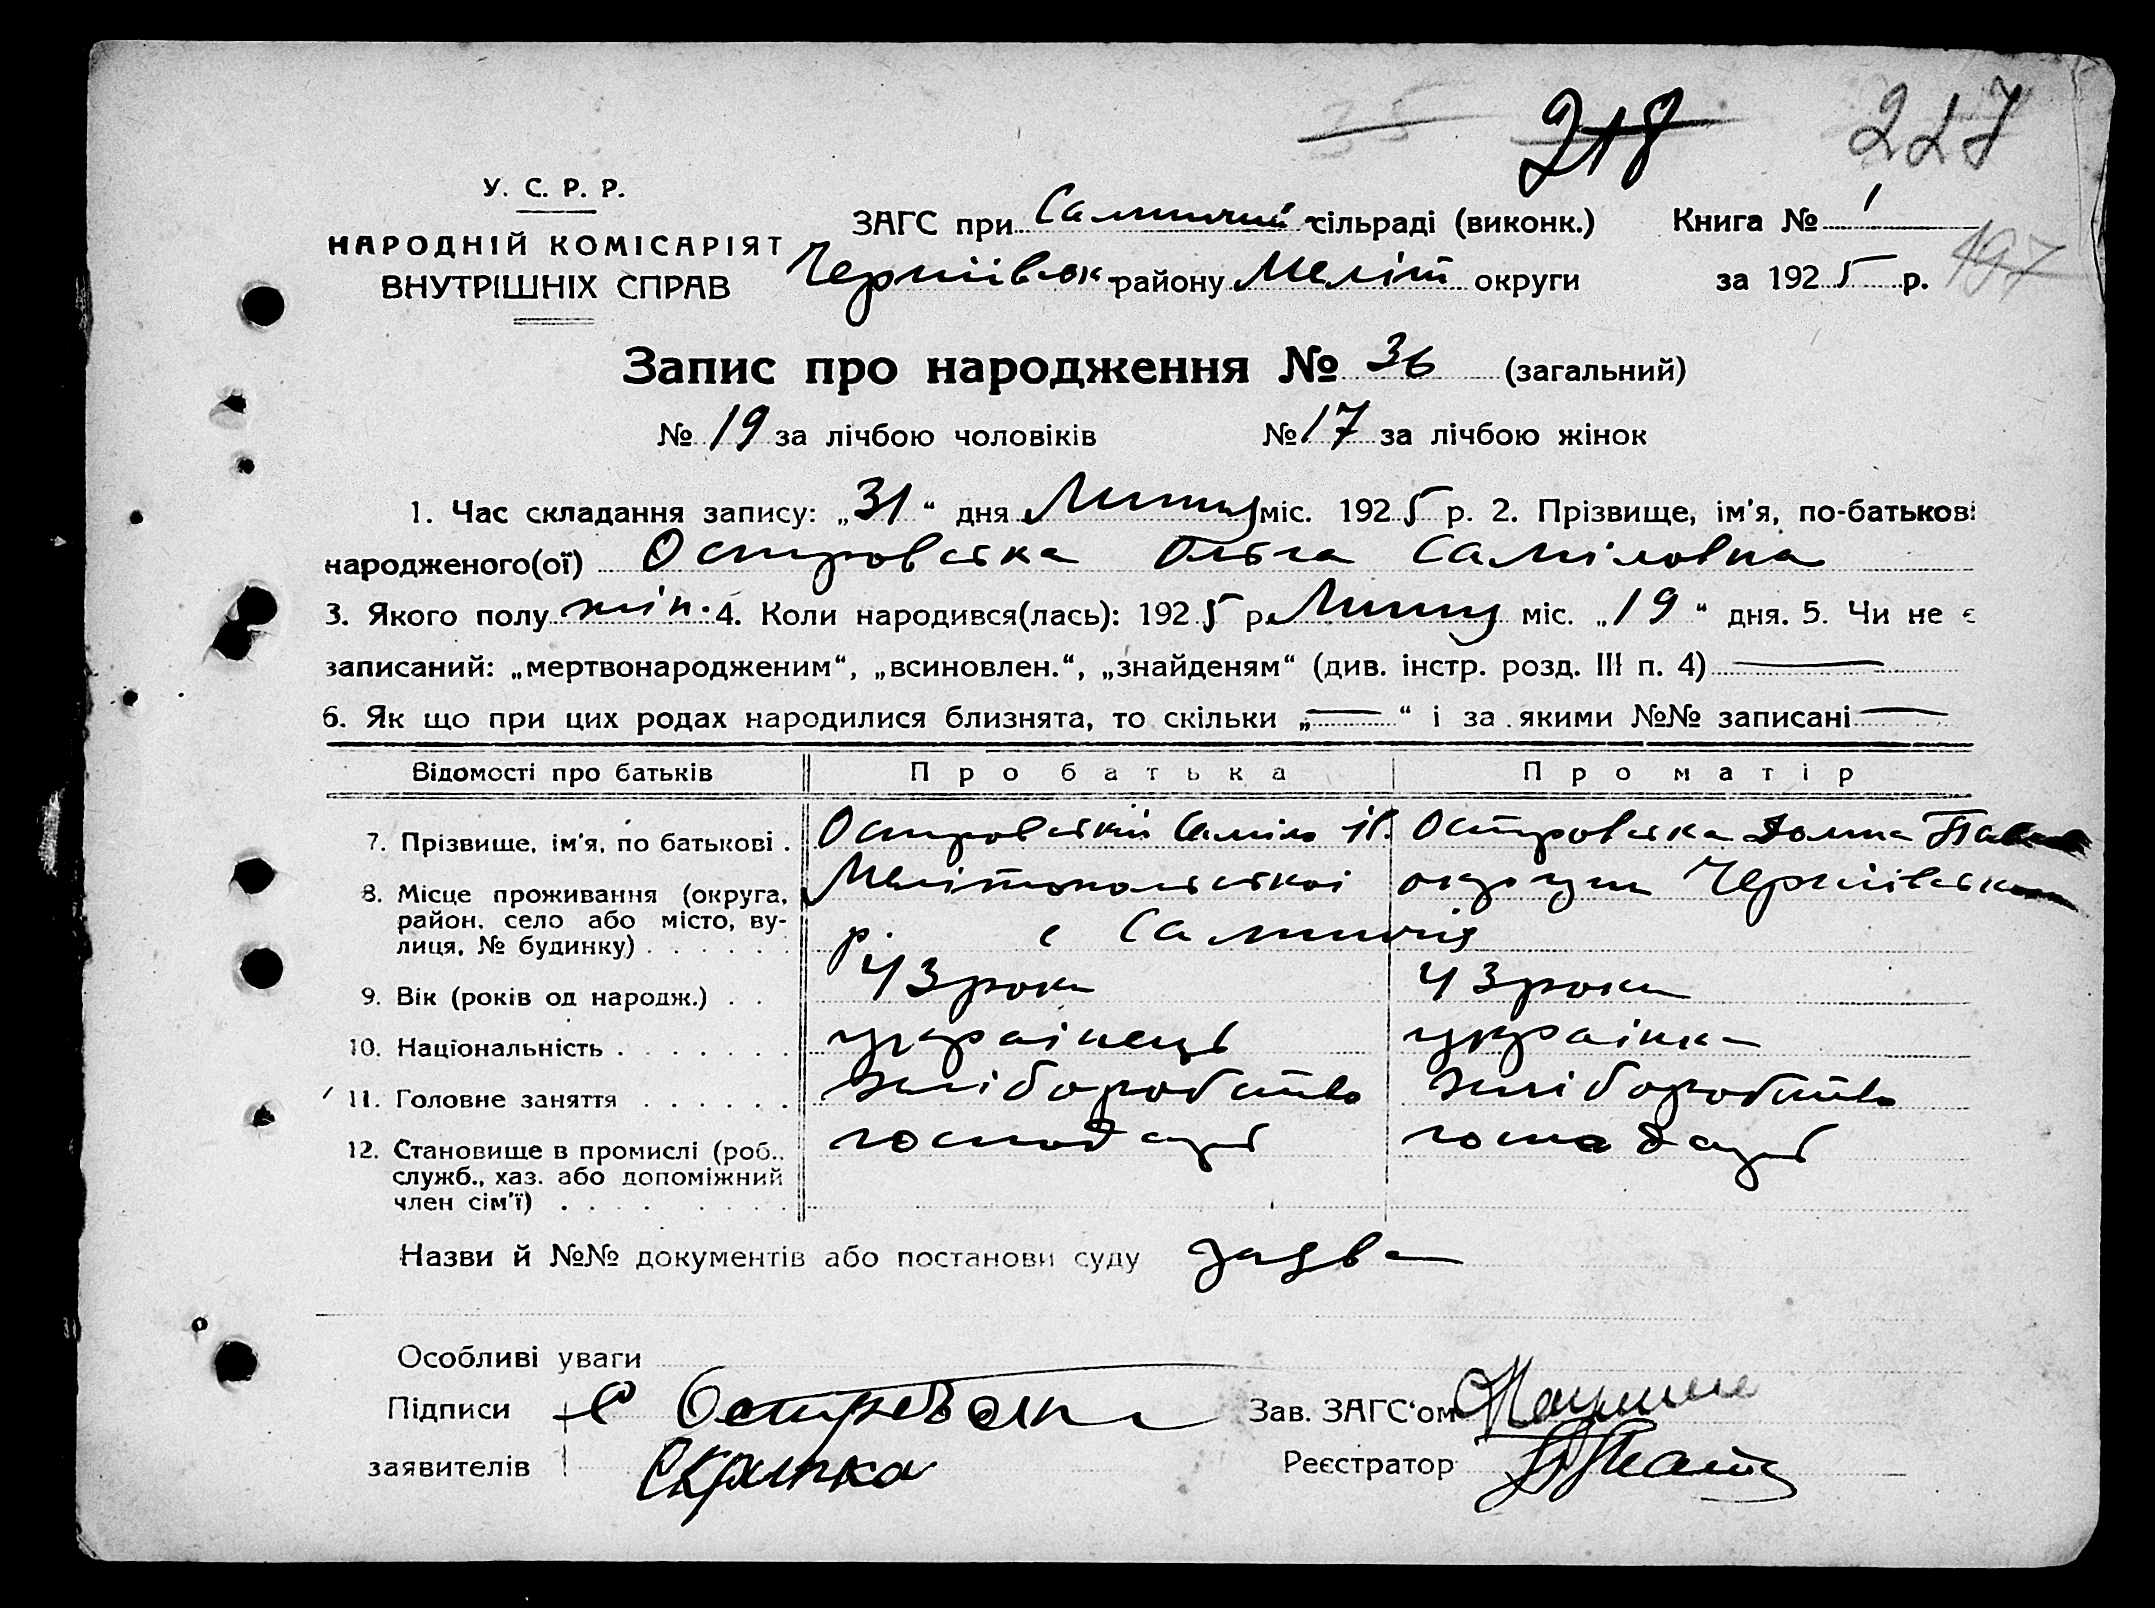 35 218 227
У. С. Р. Р.
НАРОДНІЙ КОМІСАРІЯТ
ВНУТРІШНІХ СПРАВ
ЗАГС при сільраді (виконк.) Книга № 1
Чернівськ району Меліт округи за 1925 р. 197
Запис про народження № 36 (загальний)
№ 19 за лічбою чоловіків № 17 за лічбою жінок
1. Час складання запису: „31“ дня Липня міс. 1925 р. 2. Прізвище, ім'я, по-батькові
народженого(ої) Островська Ольга Саміловна
3. Якого полу жін. 4. Коли народився(лась): 1925 р. Липня міс. „19“ дня. 5. Чи не є
записаний: „мертвонародженим“, „всиновлен.“, „знайденям“ (див. інстр. розд. III п. 4) —
6. Як що при цих родах народилися близнята, то скільки „—“ і за якими №№ записані —
Відомості про батьків Про батька Про матір
7. Прізвище, ім'я, по батькові . Островський Саміло Островська Домна
8. Місце проживання (округа, район, село або місто, вулиця, № будинку) . . . . . . Мелітопольської округи
р. с
9. Вік (років од народж.) . . 43 роки 43 роки
10. Національність . . . . . . . українець українка
11. Головне заняття . . . . . . хліборобство хліборобство
12. Становище в промислі (роб., служб., хаз. або допоміжний член сім'ї) . . . . . . . . господарь господарь
Назви й №№ документів або постанови суду заява
Особливі уваги
Підписи С Зав. ЗАГС'ом
заявителів Скрипка Реєстратор